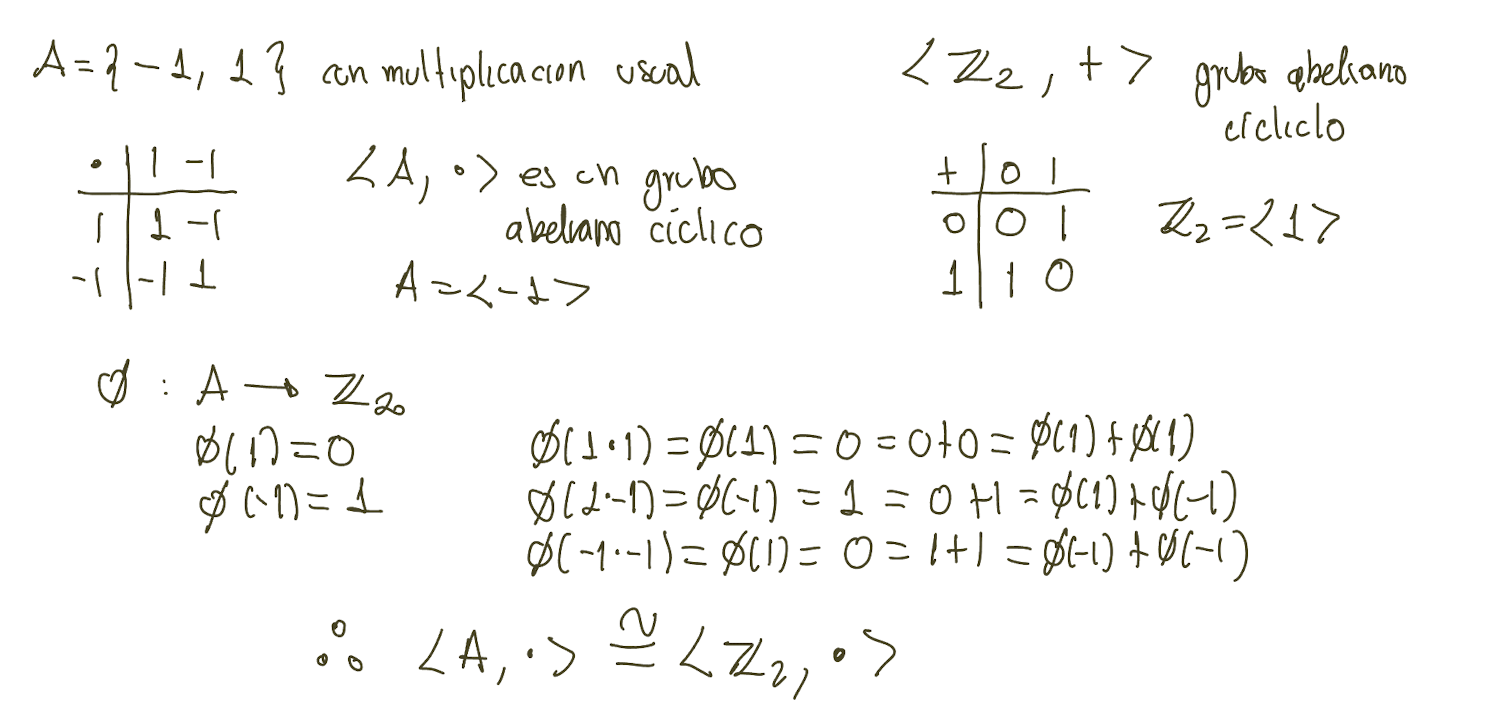 A = {-1, 1} con multiplicacion usual
· | 1 -1
1 | 1 -1
-1 | -1 1
<A, ·> es un grupo
abeliano cíclico
A = <-1>
<ℤ₂, +> grupo abeliano
cícliclo
+ | 0 1
0 | 0 1
1 | 1 0
ℤ₂ = <1>
ø : A → ℤ₂.
ø(1) = 0
ø(-1) = 1
ø(1·1) = ø(1) = 0 = 0+0 = ø(1) + ø(1)
ø(1·-1) = ø(-1) = 1 = 0+1 = ø(1) + ø(-1)
ø(-1·-1) = ø(1) = 0 = 1+1 = ø(-1) + ø(-1)
∴ <A, ·> ≅ <ℤ₂, ·>